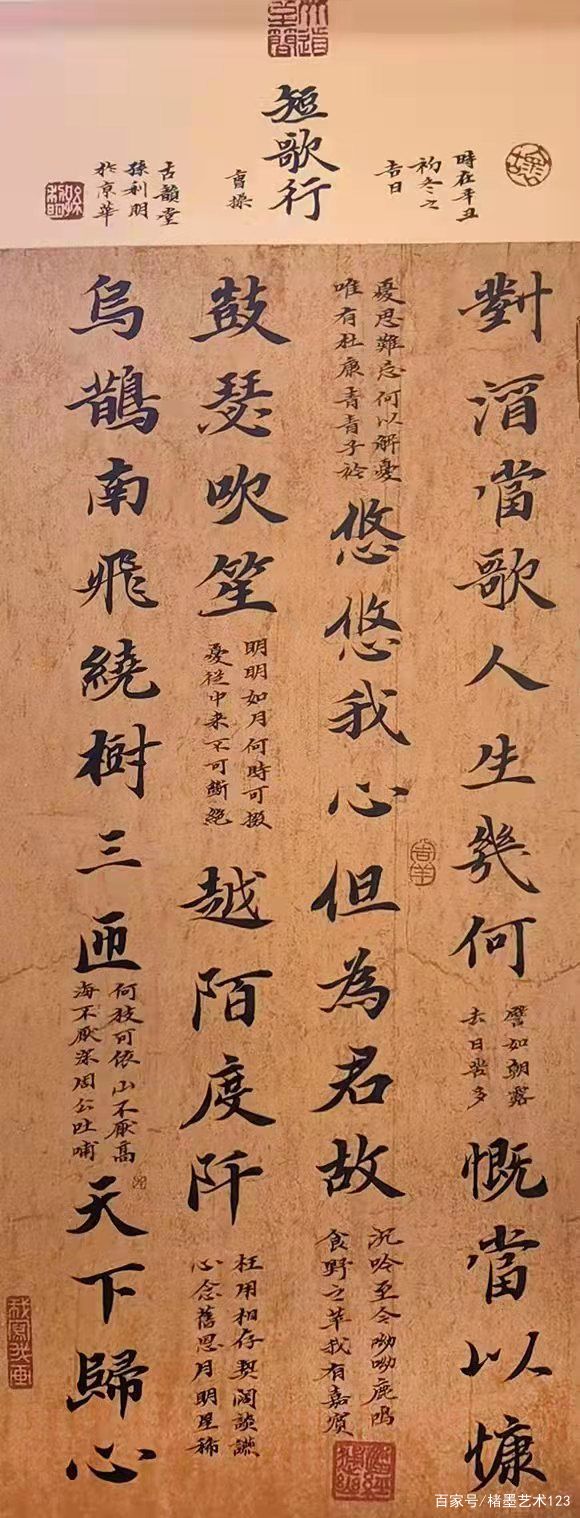 大道至簡
時在辛丑
初冬之
吉日
短歌行
曹操
古韻堂
孫利朋
於京華
對酒當歌人生幾何
譬如朝露
去日苦多
慨當以慷
憂思難忘何以解憂
唯有杜康青青子衿
悠悠我心但為君故
沉吟至今呦呦鹿鳴
食野之苹我有嘉賓
鼓瑟吹笙
明明如月何時可掇
憂從中来不可斷絕
越陌度阡
枉用相存契闊談讌
心念舊恩月明星稀
烏鵲南飛繞樹三匝
何枝可依山不厭高
海不厭深周公吐哺
天下歸心
百家号/楮墨艺术123